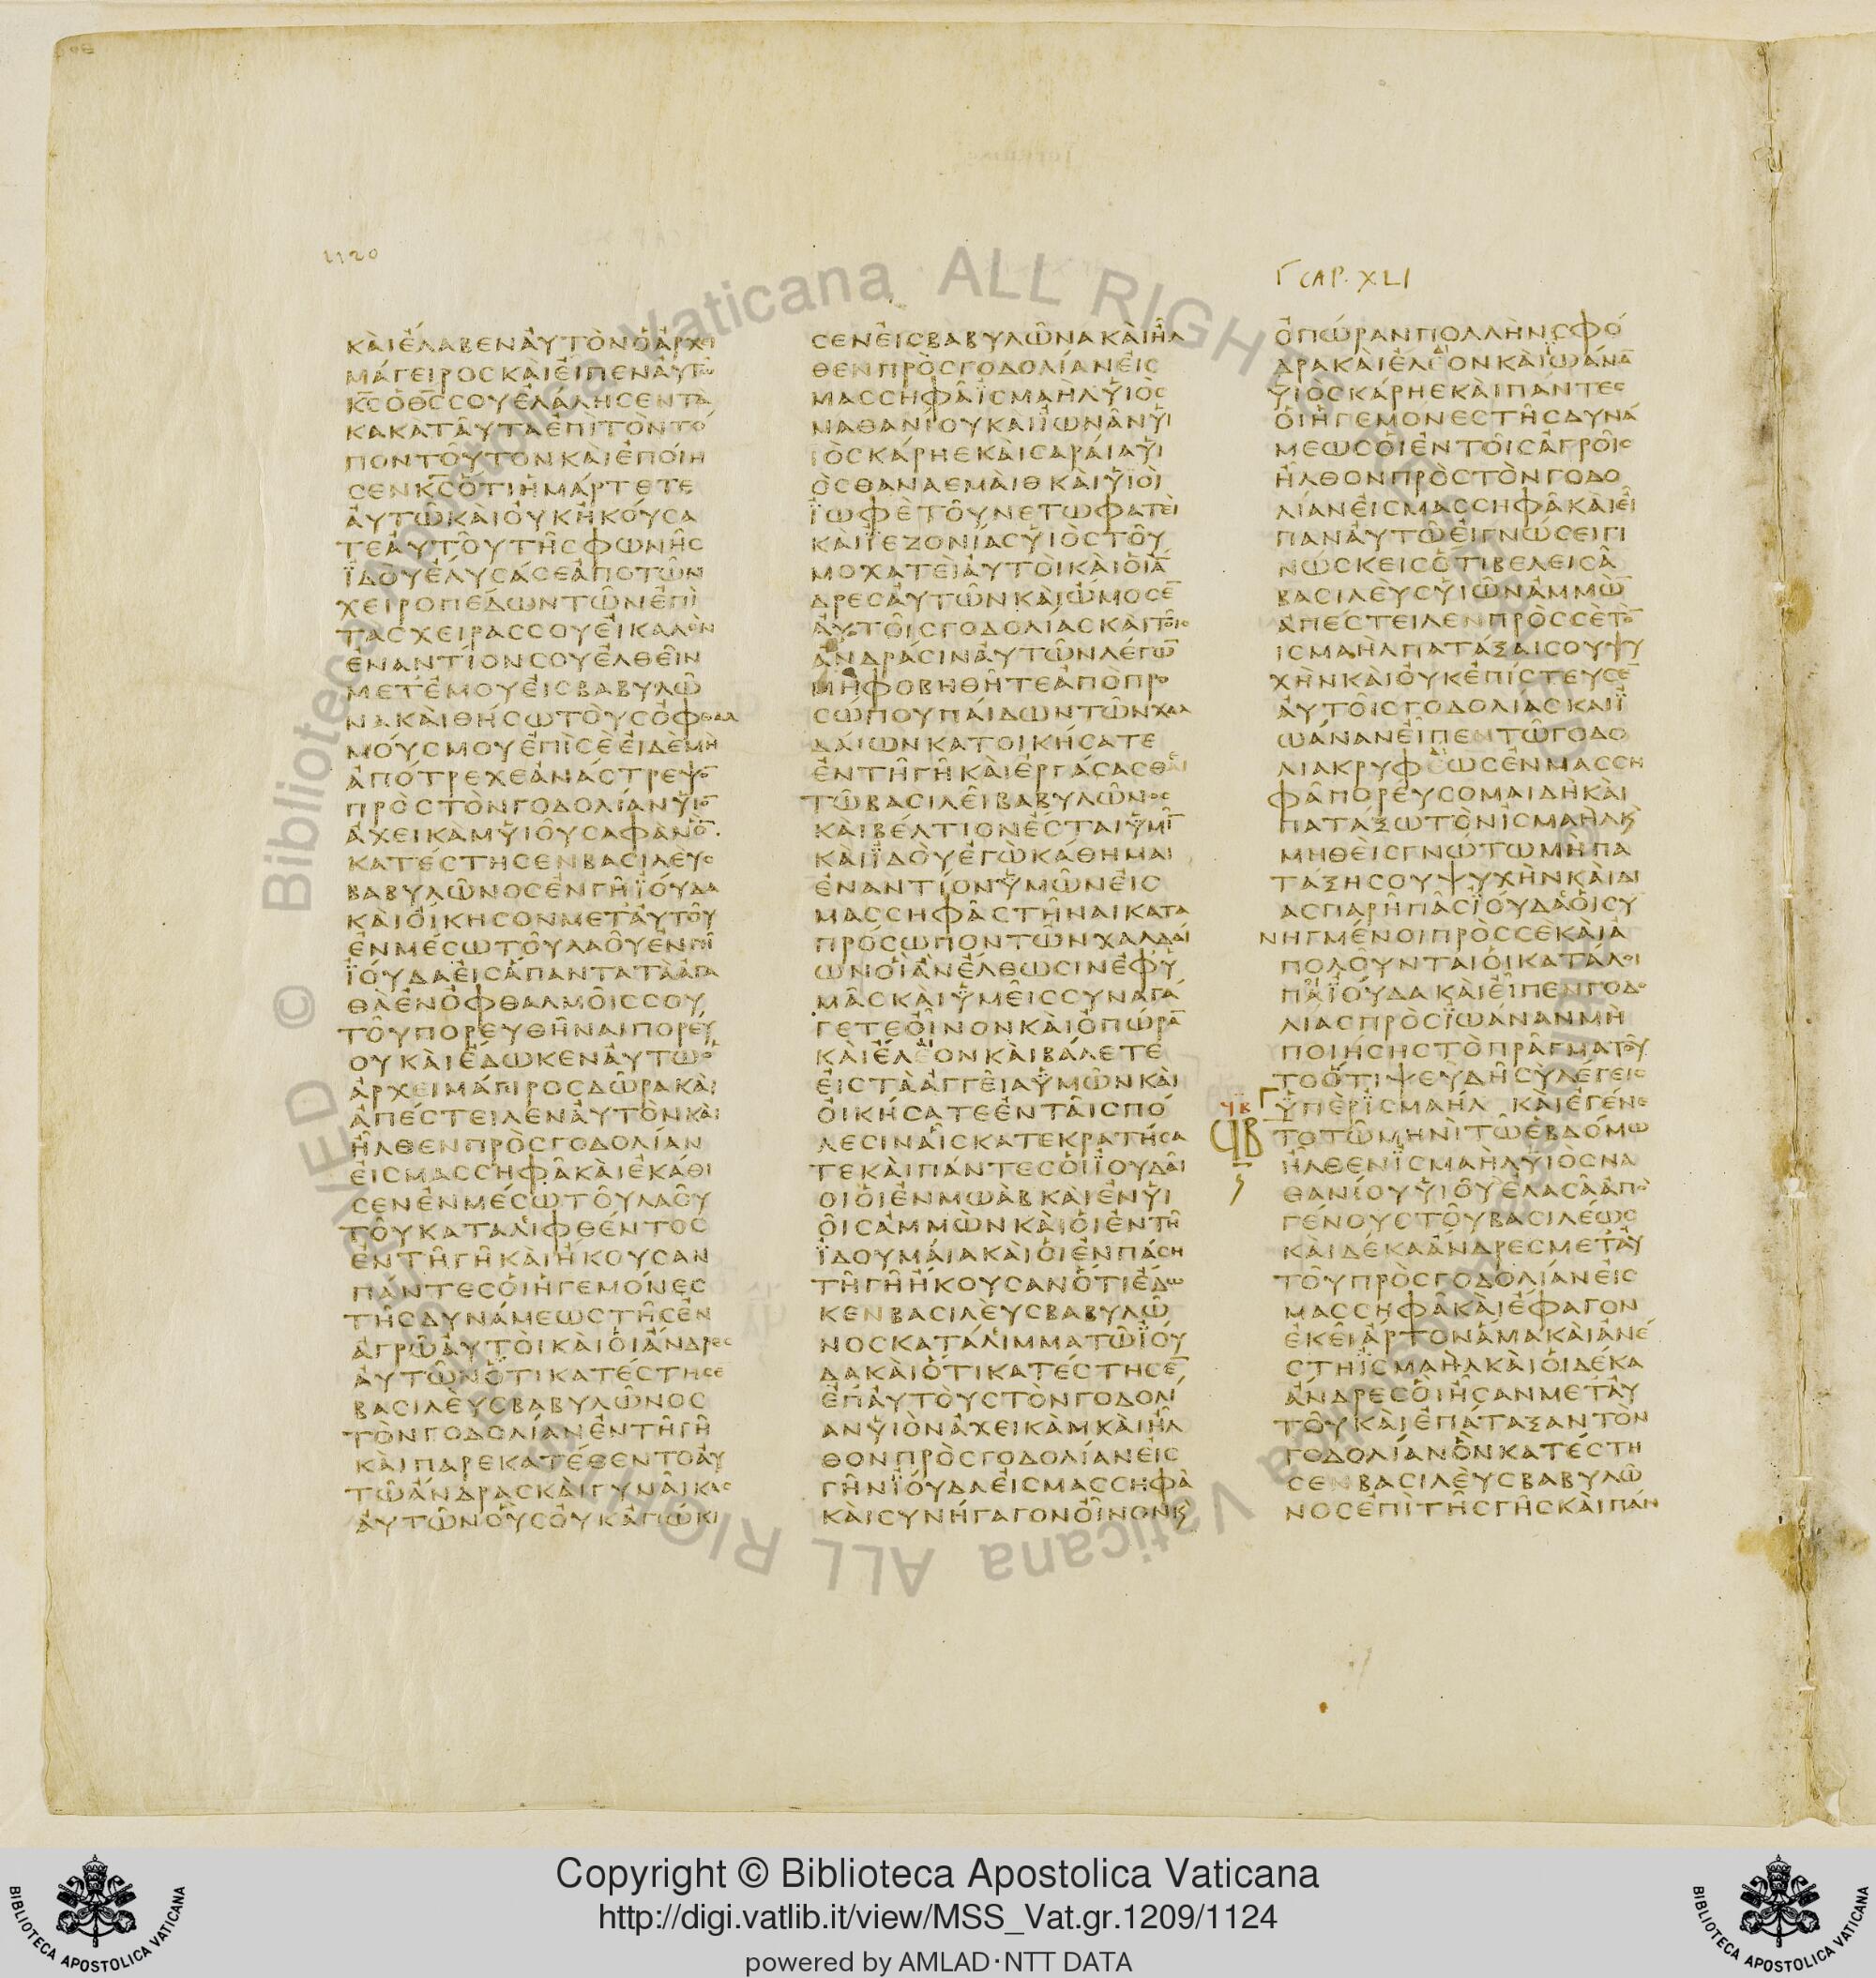 1120
ΚΑΙΕΛΑΒΕΝΑΥΤΟΝΟΑΡΧΙ
ΜΑΓΕΙΡΟΣΚΑΙΕΙΠΕΝΑΥΤΩ
Κ̅Σ̅ΟΘ̅Σ̅ΣΟΥΕΛΑΛΗΣΕΝΤΑ
ΚΑΚΑΤΑΥΤΑΕΠΙΤΟΝΤΟ
ΠΟΝΤΟΥΤΟΝΚΑΙΕΠΟΙΗ
ΣΕΝΚ̅Σ̅ΟΤΙΗΜΑΡΤΕΤΕ
ΑΥΤΩΚΑΙΟΥΚΗΚΟΥΣΑ
ΤΕΑΥΤΟΥΤΗΣΦΩΝΗΣ
ΪΔΟΥΕΛΥΣΑΣΕΑΠΟΤΩΝ
ΧΕΙΡΟΠΕΔΩΝΤΩΝΕΠΙ
ΤΑΣΧΕΙΡΑΣΣΟΥΕΙΚΑΛΟΝ
ΕΝΑΝΤΙΟΝΣΟΥΕΛΘΕΙΝ
ΜΕΤΕΜΟΥΕΙΣΒΑΒΥΛΩ̅
ΝΑΚΑΙΘΗΣΩΤΟΥΣΟΦΘΑΛ
ΜΟΥΣΜΟΥΕΠΙΣΕΕΙΔΕΜΗ
ΑΠΟΤΡΕΧΕΑΝΑΣΤΡΕΨΟ̅
ΠΡΟΣΤΟΝΓΟΔΟΛΙΑΝΥΙΟ̅
ΑΧΕΙΚΑΜΥΙΟΥΣΑΦΑΝΟ̅
ΚΑΤΕΣΤΗΣΕΝΒΑΣΙΛΕΥΣ
ΒΑΒΥΛΩΝΟΣΕΝΓΗΪΟΥΔΑ
ΚΑΙΟΙΚΗΣΟΝΜΕΤΑΥΤΟΥ
ΕΝΜΕΣΩΤΟΥΛΑΟΥΕΝΓΗ
ΪΟΥΔΑΕΙΣΑΠΑΝΤΑΤΑΑΓΑ
ΘΑΕΝΟΦΘΑΛΜΟΙΣΣΟΥ
ΤΟΥΠΟΡΕΥΘΗΝΑΙΠΟΡΕΥ
ΟΥΚΑΙΕΔΩΚΕΝΑΥΤΩΟ
ΑΡΧΕΙΜΑΓΙΡΟΣΔΩΡΑΚΑΙ
ΑΠΕΣΤΕΙΛΕΝΑΥΤΟΝΚΑΙ
ΗΛΘΕΝΠΡΟΣΓΟΔΟΛΙΑΝ
ΕΙΣΜΑΣΣΗΦΑΚΑΙΕΚΑΘΙ
ΣΕΝΕΝΜΕΣΩΤΟΥΛΑΟΥ
ΤΟΥΚΑΤΑΛΙΦΘΕΝΤΟΣ
ΕΝΤΗΓΗΚΑΙΗΚΟΥΣΑΝ
ΠΑΝΤΕΣΟΙΗΓΕΜΟΝΕΣ
ΤΗΣΔΥΝΑΜΕΩΣΤΗΣΕΝ
ΑΓΡΩΑΥΤΟΙΚΑΙΟΙΑΝΔΡΕΣ
ΑΥΤΩΝΟΤΙΚΑΤΕΣΤΗΣΕ̅
ΒΑΣΙΛΕΥΣΒΑΒΥΛΩΝΟΣ
ΤΟΝΓΟΔΟΛΙΑΝΕΝΤΗΓΗ
ΚΑΙΠΑΡΕΚΑΤΕΘΕΝΤΟΑΥ
ΤΩΑΝΔΡΑΣΚΑΙΓΥΝΑΙΚΑΣ
ΑΥΤΩΝΟΥΣΟΥΚΑΠΩΚΙ
ΣΕΝΕΙΣΒΑΒΥΛΩΝΑΚΑΙΗΛ
ΘΕΝΠΡΟΣΓΟΔΟΛΙΑΝΕΙΣ
ΜΑΣΣΗΦΑΪΣΜΑΗΛΥΙΟΣ
ΝΑΘΑΝΙΟΥΚΑΙΪΩΝΑΝΥΙ
ΙΟΣΚΑΡΗΕΚΑΙΣΑΡΑΙΑΥΙ
ΟΣΘΑΝΑΕΜΑΙΘΚΑΙΥΙΟΙ
ΪΩΦΕΤΟΥΝΕΤΩΦΑΤΕΙ
ΚΑΙΪΕΖΟΝΙΑΣΥΙΟΣΤΟΥ
ΜΟΧΑΤΕΙΑΥΤΟΙΚΑΙΟΙΑ̅
ΔΡΕΣΑΥΤΩΝΚΑΙΩΜΟΣΕ̅
ΑΥΤΟΙΣΓΟΔΟΛΙΑΣΚΑΙΤΟΙΣ
ΑΝΔΡΑΣΙΝΑΥΤΩΝΛΕΓΩ̅
ΜΗΦΟΒΗΘΗΤΕΑΠΟΠΡΟ
ΣΩΠΟΥΠΑΙΔΩΝΤΩΝΧΑΛ
ΔΑΙΩΝΚΑΤΟΙΚΗΣΑΤΕ
ΕΝΤΗΓΗΚΑΙΕΡΓΑΣΑΣΘΑΙ
ΤΩΒΑΣΙΛΕΙΒΑΒΥΛΩΝΟΣ
ΚΑΙΒΕΛΤΙΟΝΕΣΤΑΙΥΜΙ̅
ΚΑΙΪΔΟΥΕΓΩΚΑΘΗΜΑΙ
ΕΝΑΝΤΙΟΝΥΜΩΝΕΙΣ
ΜΑΣΣΗΦΑΣΤΗΝΑΙΚΑΤΑ
ΠΡΟΣΩΠΟΝΤΩΝΧΑΛΔΑΙ
ΩΝΟΙΑΝΕΛΘΩΣΙΝΕΦΥ
ΜΑΣΚΑΙΥΜΕΙΣΣΥΝΑΓΑ
ΓΕΤΕΟΙΝΟΝΚΑΙΟΠΩΡΑ̅
ΚΑΙΕΛΕΟΝΚΑΙΒΑΛΕΤΕ
ΕΙΣΤΑΑΓΓΕΙΑΥΜΩΝΚΑΙ
ΟΙΚΗΣΑΤΕΕΝΤΑΙΣΠΟ
ΛΕΣΙΝΑΙΣΚΑΤΕΚΡΑΤΗΣΑ
ΤΕΚΑΙΠΑΝΤΕΣΟΙΪΟΥΔΑΙ
ΟΙΟΙΕΝΜΩΑΒΚΑΙΕΝΥΙ
ΟΙΣΑΜΜΩΝΚΑΙΟΙΕΝΤΗ
ΪΔΟΥΜΑΙΑΚΑΙΟΙΕΝΠΑΣΗ
ΤΗΓΗΗΚΟΥΣΑΝΟΤΙΕΔΩ
ΚΕΝΒΑΣΙΛΕΥΣΒΑΒΥΛΩ
ΝΟΣΚΑΤΑΛΙΜΜΑΤΩΪΟΥ
ΔΑΚΑΙΟΤΙΚΑΤΕΣΤΗΣΕ̅
ΕΠΑΥΤΟΥΣΤΟΝΓΟΔΟΛΙ
ΑΝΥΙΟΝΑΧΕΙΚΑΜΚΑΙΗΛ
ΘΟΝΠΡΟΣΓΟΔΟΛΙΑΝΕΙΣ
ΓΗΝΪΟΥΔΑΕΙΣΜΑΣΣΗΦΑ
ΚΑΙΣΥΝΗΓΑΓΟΝΟΙΝΟΝΚϗ
Γ CAP. XLI
ΟΠΩΡΑΝΠΟΛΛΗΝΣΦΟ
ΔΡΑΚΑΙΕΛΕΟΝΚΑΙΪΩΑΝΑ̅
ΥΙΟΣΚΑΡΗΕΚΑΙΠΑΝΤΕΣ
ΟΙΗΓΕΜΟΝΕΣΤΗΣΔΥΝΑ
ΜΕΩΣΟΙΕΝΤΟΙΣΑΓΡΟΙΣ
ΗΛΘΟΝΠΡΟΣΤΟΝΓΟΔΟ
ΛΙΑΝΕΙΣΜΑΣΣΗΦΑΚΑΙΕΙ
ΠΑΝΑΥΤΩΕΙΓΝΩΣΕΙΓΙ
ΝΩΣΚΕΙΣΟΤΙΒΕΛΕΙΣΑ
ΒΑΣΙΛΕΥΣΥΙΩΝΑΜΜΩ̅
ΑΠΕΣΤΕΙΛΕΝΠΡΟΣΣΕΤΟ̅
ΙΣΜΑΗΛΠΑΤΑΞΑΙΣΟΥΨΥ
ΧΗΝΚΑΙΟΥΚΕΠΙΣΤΕΥΣΕ̅
ΑΥΤΟΙΣΓΟΔΟΛΙΑΣΚΑΙΪ
ΩΑΝΑΝΕΙΠΕΝΤΩΓΟΔΟ
ΛΙΑΚΡΥΦΕΩΣΕΝΜΑΣΣΗ
ΦΑΠΟΡΕΥΣΟΜΑΙΔΗΚΑΙ
ΠΑΤΑΞΩΤΟΝΪΣΜΑΗΛϗ
ΜΗΘΕΙΣΓΝΩΤΩΜΗΠΑ
ΤΑΞΗΣΟΥΨΥΧΗΝΚΑΙΔΙ
ΑΣΠΑΡΗΠΑΣΪΟΥΔΑΟΙΣΥ
ΝΗΓΜΕΝΟΙΠΡΟΣΣΕΚΑΙΑ
ΠΟΛΟΥΝΤΑΙΟΙΚΑΤΑΛΟΙ
ΠΑΪΟΥΔΑΚΑΙΕΙΠΕΝΓΟΔΟ
ΛΙΑΣΠΡΟΣΪΩΑΝΑΝΜΗ
ΠΟΙΗΣΗΣΤΟΠΡΑΓΜΑΤΟΥ
ΤΟΟΤΙΨΕΥΔΗΣΥΛΕΓΕΙΣ
ΥΠΕΡΪΣΜΑΗΛ ΚΑΙΕΓΕΝΕ
ϤΒ ΤΟΤΩΜΗΝΙΤΩΕΒΔΟΜΩ
ΗΛΘΕΝΪΣΜΑΗΛΥΙΟΣΝΑ
ΘΑΝΙΟΥΥΙΟΥΕΛΑΣΑΑΠΟ
ΓΕΝΟΥΣΤΟΥΒΑΣΙΛΕΩΣ
ΚΑΙΔΕΚΑΑΝΔΡΕΣΜΕΤΑΥ
ΤΟΥΠΡΟΣΓΟΔΟΛΙΑΝΕΙΣ
ΜΑΣΣΗΦΑΚΑΙΕΦΑΓΟΝ
ΕΚΕΙΑΡΤΟΝΑΜΑΚΑΙΑΝΕ
ΣΤΗΪΣΜΑΗΛΚΑΙΟΙΔΕΚΑ
ΑΝΔΡΕΣΟΙΗΣΑΝΜΕΤΑΥ
ΤΟΥΚΑΙΕΠΑΤΑΞΑΝΤΟΝ
ΓΟΔΟΛΙΑΝΟΝΚΑΤΕΣΤΗ
ΣΕΝΒΑΣΙΛΕΥΣΒΑΒΥΛΩ
ΝΟΣΕΠΙΤΗΣΓΗΣΚΑΙΠΑΝ
Copyright © Biblioteca Apostolica Vaticana
http://digi.vatlib.it/view/MSS_Vat.gr.1209/1124
powered by AMLAD·NTT DATA
BIBLIOTECA APOSTOLICA VATICANA
BIBLIOTECA APOSTOLICA VATICANA